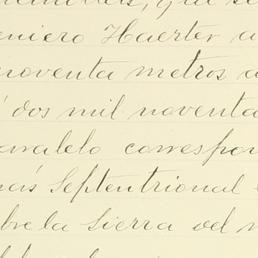 que se
eniero Haerter a
noventa metros a
dos mil noventa
aralelo correspon
más Septentrional
bre la Sierra del